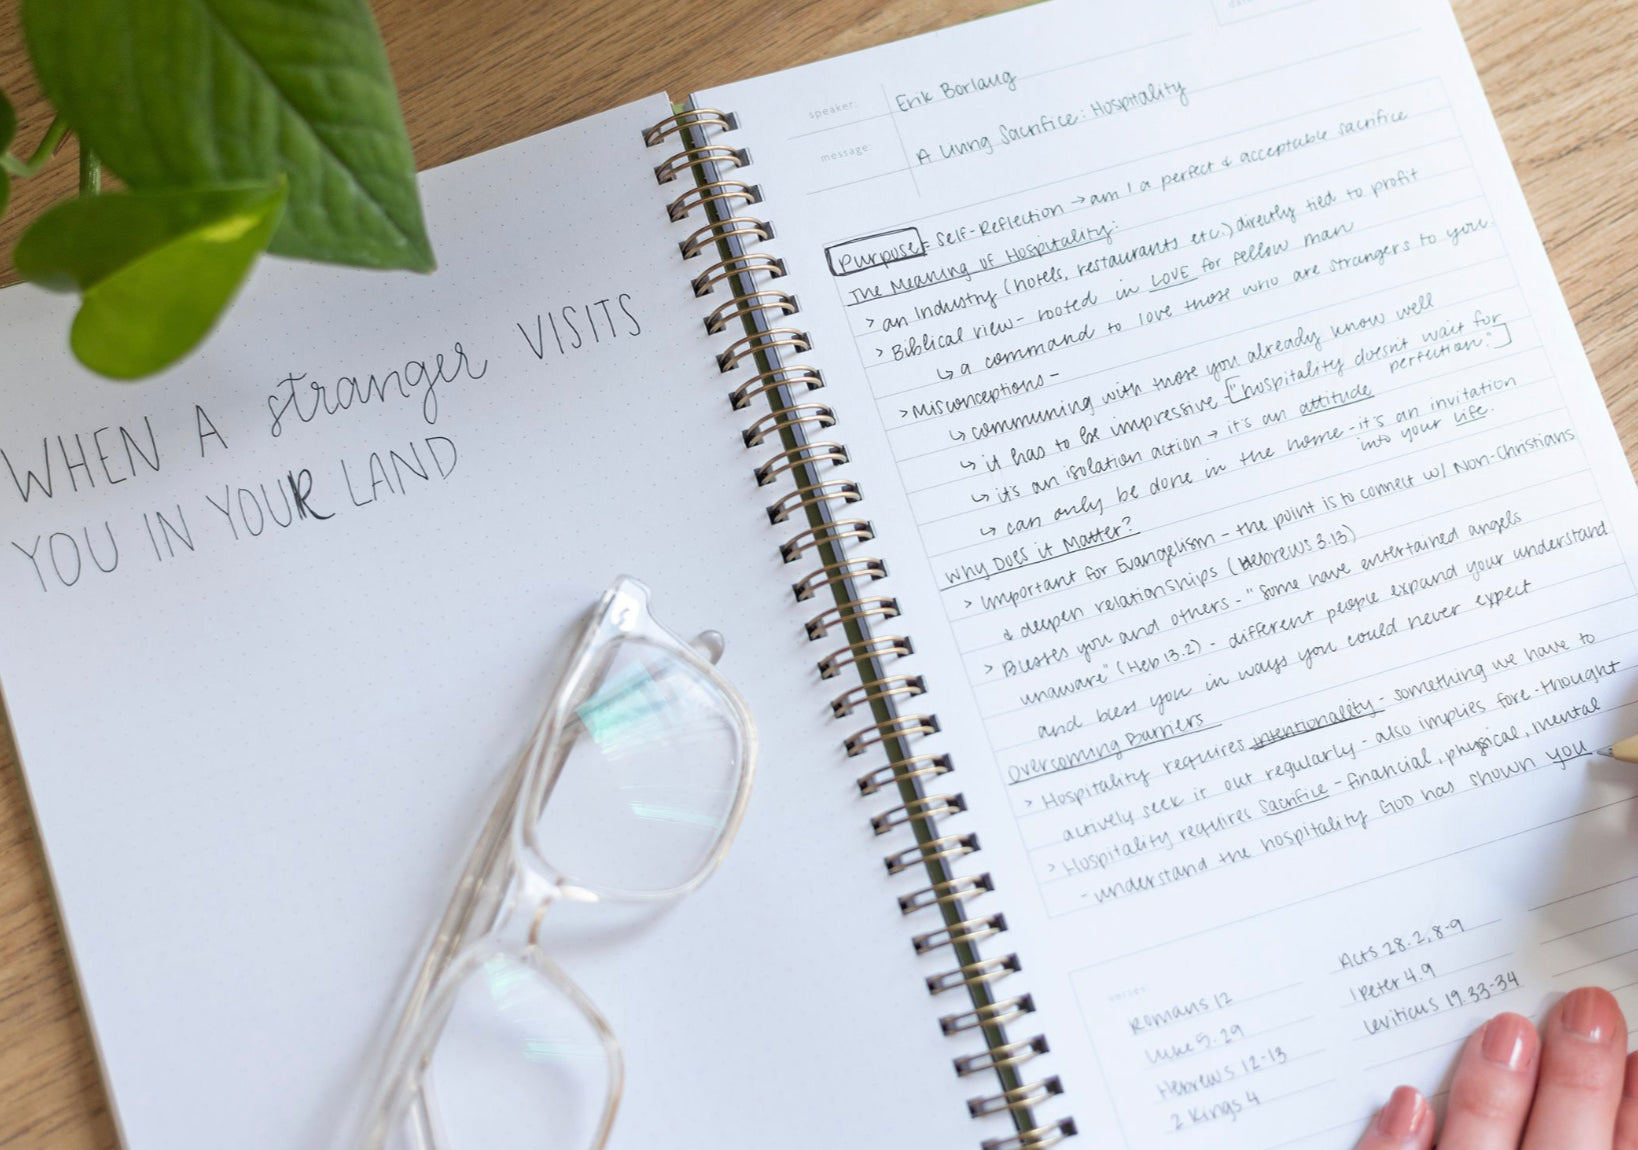 WHEN A stranger VISITS
YOU IN YOUR LAND
date
speaker: Erik Borlaug
message: A Living Sacrifice: Hospitality
Purpose = Self-Reflection → am I a perfect & acceptable sacrifice
The Meaning of Hospitality:
> an Industry (hotels, restaurants etc.) directly tied to profit
> Biblical view - rooted in LOVE for fellow man
↳ a command to love those who are strangers to you.
> Misconceptions -
↳ communing with those you already know well
↳ it has to be impressive ["hospitality doesn't wait for
perfection."]
↳ it's an isolation action → it's an attitude
↳ can only be done in the home - it's an invitation
into your life.
Why Does it Matter?
> Important for Evangelism - the point is to connect w/ Non-Christians
& deepen relationships (Hebrews 3.13)
> Blesses you and others - "Some have entertained angels
unaware" (Heb 13.2) - different people expand your understand
and bless you in ways you could never expect
Overcoming Barriers
> Hospitality requires intentionality - something we have to
actively seek it out regularly - also implies fore-thought
> Hospitality requires Sacrifice - financial, physical, mental
- understand the hospitality GOD has shown you
verses
Romans 12
Luke 5.29
Hebrews 12-13
2 Kings 4
Acts 28.2, 8-9
1 Peter 4.9
Leviticus 19.33-34